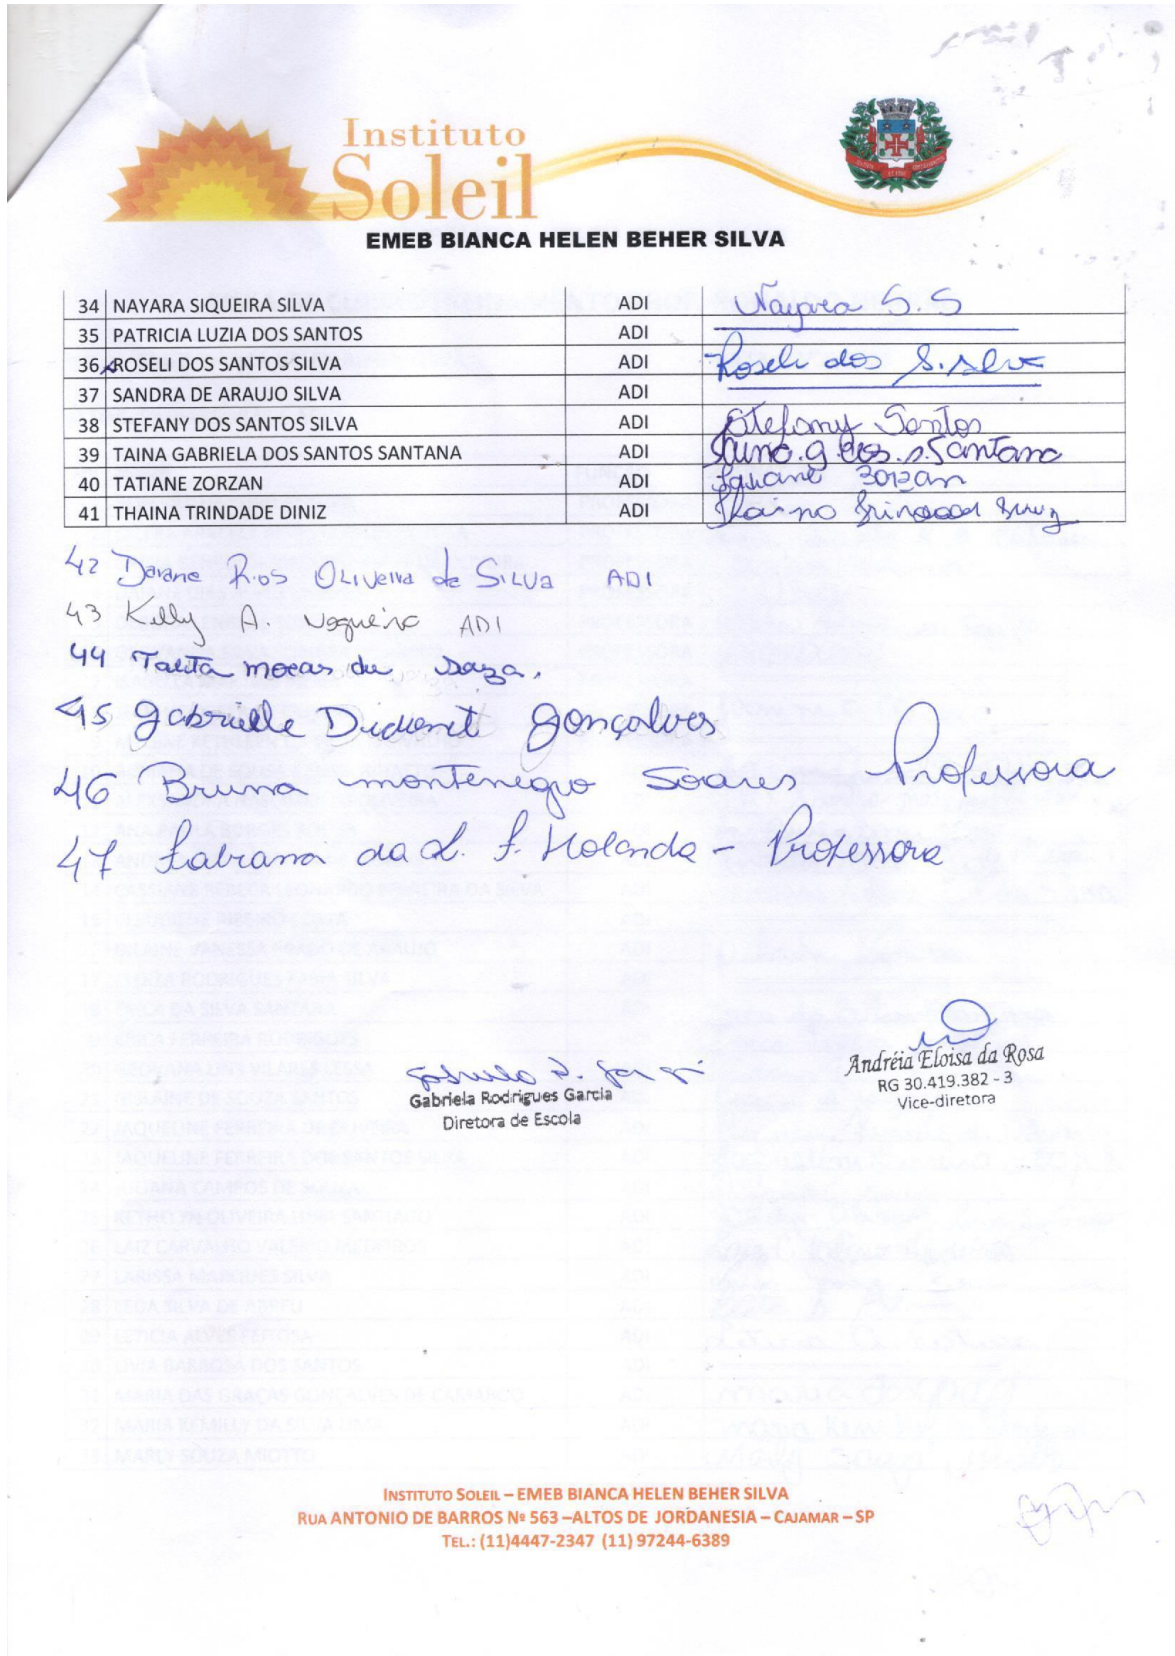 Instituto
Soleil
EMEB BIANCA HELEN BEHER SILVA
34 NAYARA SIQUEIRA SILVA ADI Nayara S.S
35 PATRICIA LUZIA DOS SANTOS ADI
36 ROSELI DOS SANTOS SILVA ADI Roseli dos S. Silva
37 SANDRA DE ARAUJO SILVA ADI
38 STEFANY DOS SANTOS SILVA ADI Stefany Santos
39 TAINA GABRIELA DOS SANTOS SANTANA ADI g. dos. s. Santana
40 TATIANE ZORZAN ADI Tatiane Zorzan
41 THAINA TRINDADE DINIZ ADI
42 Daiane Rios OLIVEIRA da SILVA ADI
43 Kelly A. Nogueira ADI
44 Talita de Souza.
45 Gabrielle Gonçalves
46 Bruna montenegro Soares Professora
47 Fabiana da L. F. Holanda - Professora
Andréia Eloisa da Rosa
RG 30.419.382 - 3
Vice-diretora
Gabriela Rodrigues Garcia
Diretora de Escola
INSTITUTO SOLEIL – EMEB BIANCA HELEN BEHER SILVA
RUA ANTONIO DE BARROS Nº 563 –ALTOS DE JORDANESIA – CAJAMAR – SP
TEL.: (11)4447-2347 (11) 97244-6389